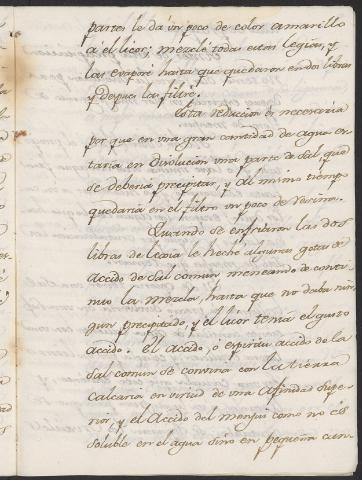 partes lo da un poco de color amarillo
a el licor; mezclé todas estas legias, y
las evaporé hasta que quedaron en dos libras
y despues las filtré.
Esta reduccion es necesaria
por que en una gran cantidad de agua es-
taria en disolucion una parte de sal, que
se deberia precipitar, y al mismo tiemp
quedaria en el filtro un poco de resina.
Quando se enfriaron las dos
libras de lexia le heché algunas gotas de
accido de sal comun meneando de conti-
nuo la mezcla, hasta que no daba nin-
gun precipitado, y el licor tenia el gusto
accido. El accido, ó espiritu accido de la
sal comun se convina con la tierra
calcaria en virtud de una afinidad supe-
rior, y el accido del menjui como no és
soluble en el agua sino en pequeña can-